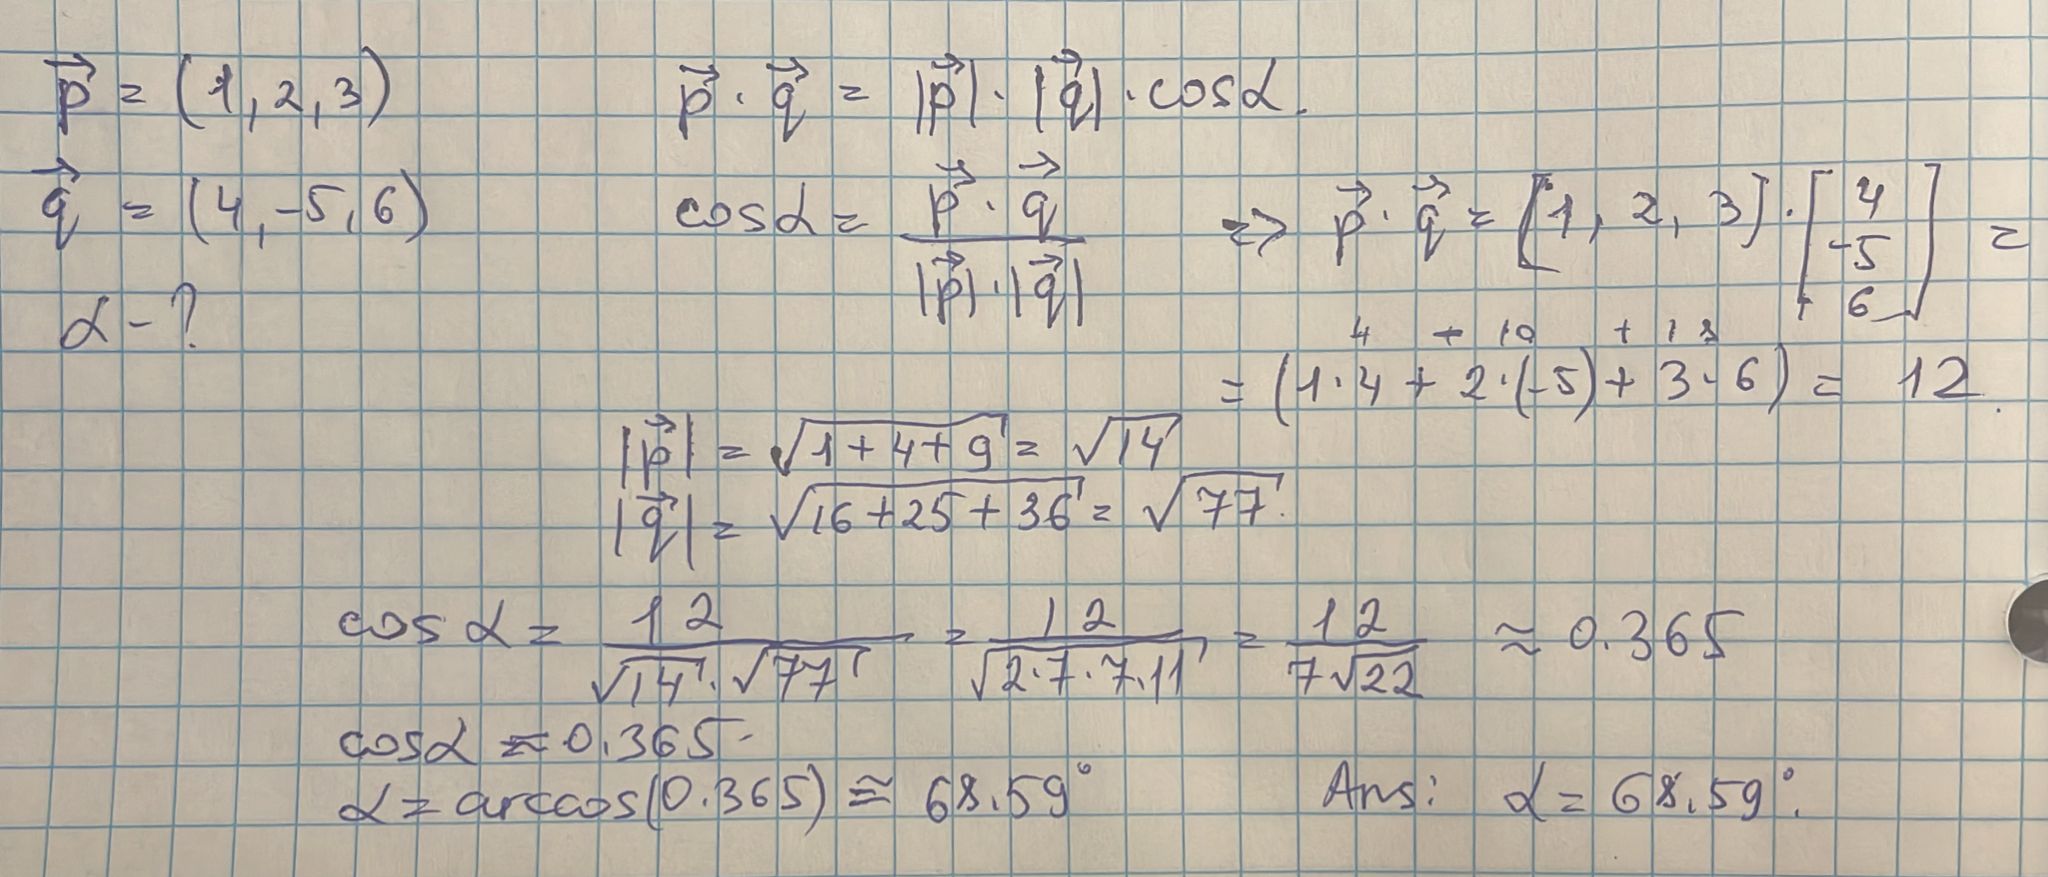 p⃗ = (1, 2, 3)
p⃗ · q⃗ = |p⃗| · |q⃗| · cosα.
q⃗ = (4, -5, 6)
cosα = (p⃗ · q⃗) / (|p⃗| · |q⃗|) => p⃗ · q⃗ = [1, 2, 3] · [4 -5 6] =
α - ?
4 + 10 + 18
= (1·4 + 2·(-5) + 3·6) = 12.
|p⃗| = √(1+4+9) = √14
|q⃗| = √(16+25+36) = √77.
cos α = 12 / (√14 · √77) = 12 / √(2·7·7·11) = 12 / (7√22) ≈ 0.365
cosα ≈ 0.365.
α = arccos(0.365) ≅ 68.59°
Ans: α = 68.59°.